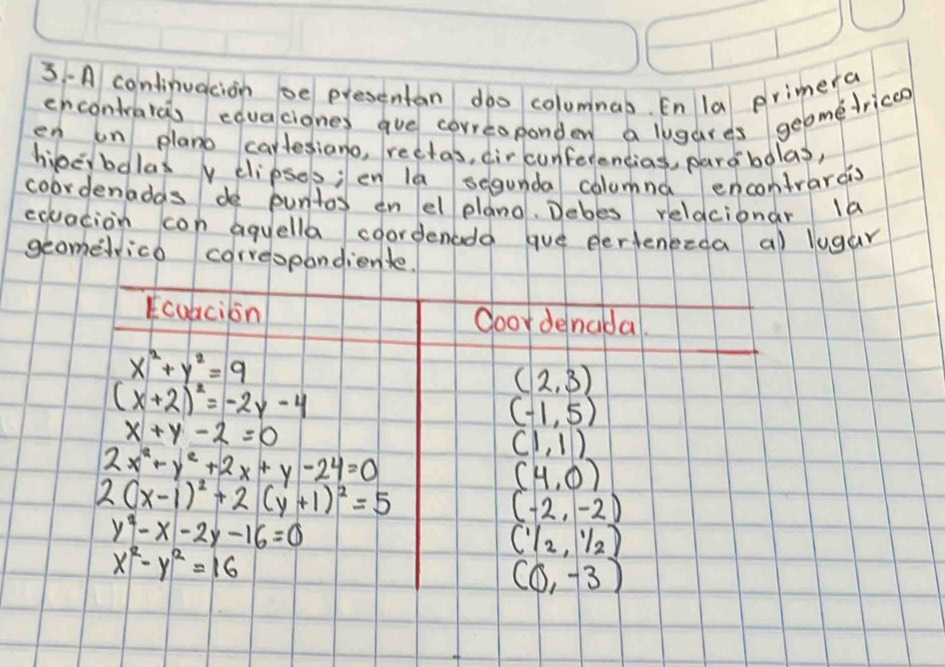 3.-A continuación se presentan dos columnas. En la primera
encontrarás ecuaciones que corresponden a lugares geométricos
en un plano cartesiano, rectas, circunferencias, parábolas,
hipérbolas y elipses; en la segunda columna encontrarás
coordenadas de puntos en el plano. Debes relacionar la
ecuación con aquella coordenada que pertenezca al lugar
geométrico correspondiente.
Ecuación Coordenada.
x² + y² = 9 (2,3)
(x+2)² = -2y - 4 (-1,5)
x + y - 2 = 0 (1,1)
2x² + y² + 2x + y - 24 = 0 (4,0)
2(x-1)² + 2(y+1)² = 5 (-2,-2)
y² - x - 2y - 16 = 0 (1/2, 1/2)
x² - y² = 16 (0,-3)